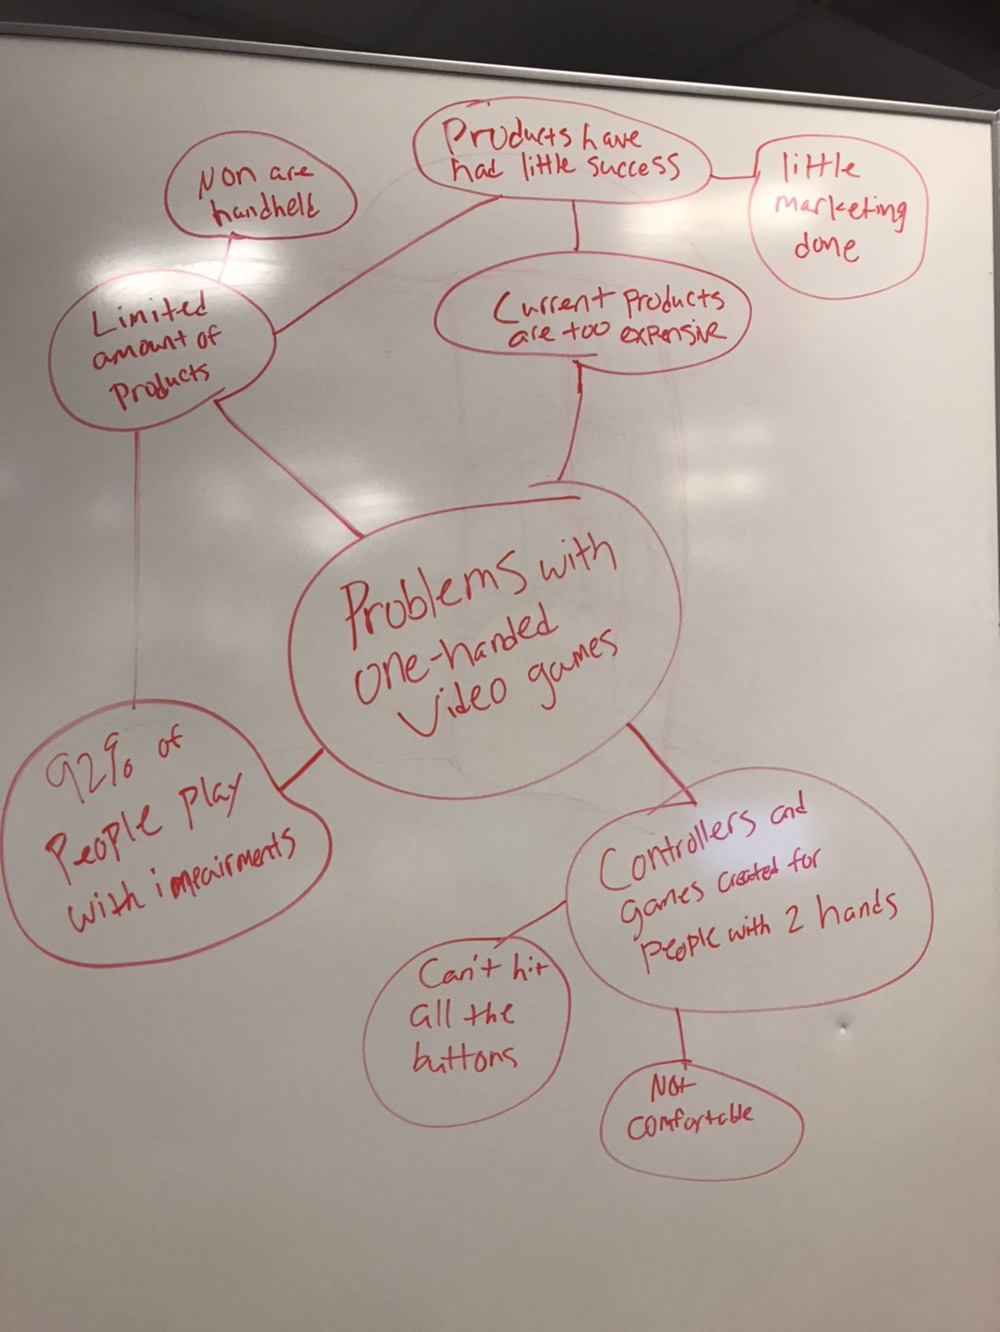 Products have
had little success
little
marketing
done
Non are
handheld
Limited
amount of
Products
Current products
are too expensive
Problems with
one-handed
Video games
92% of
People play
with impairments
Controllers and
games created for
people with 2 hands
Can't hit
all the
buttons
Not
comfortable